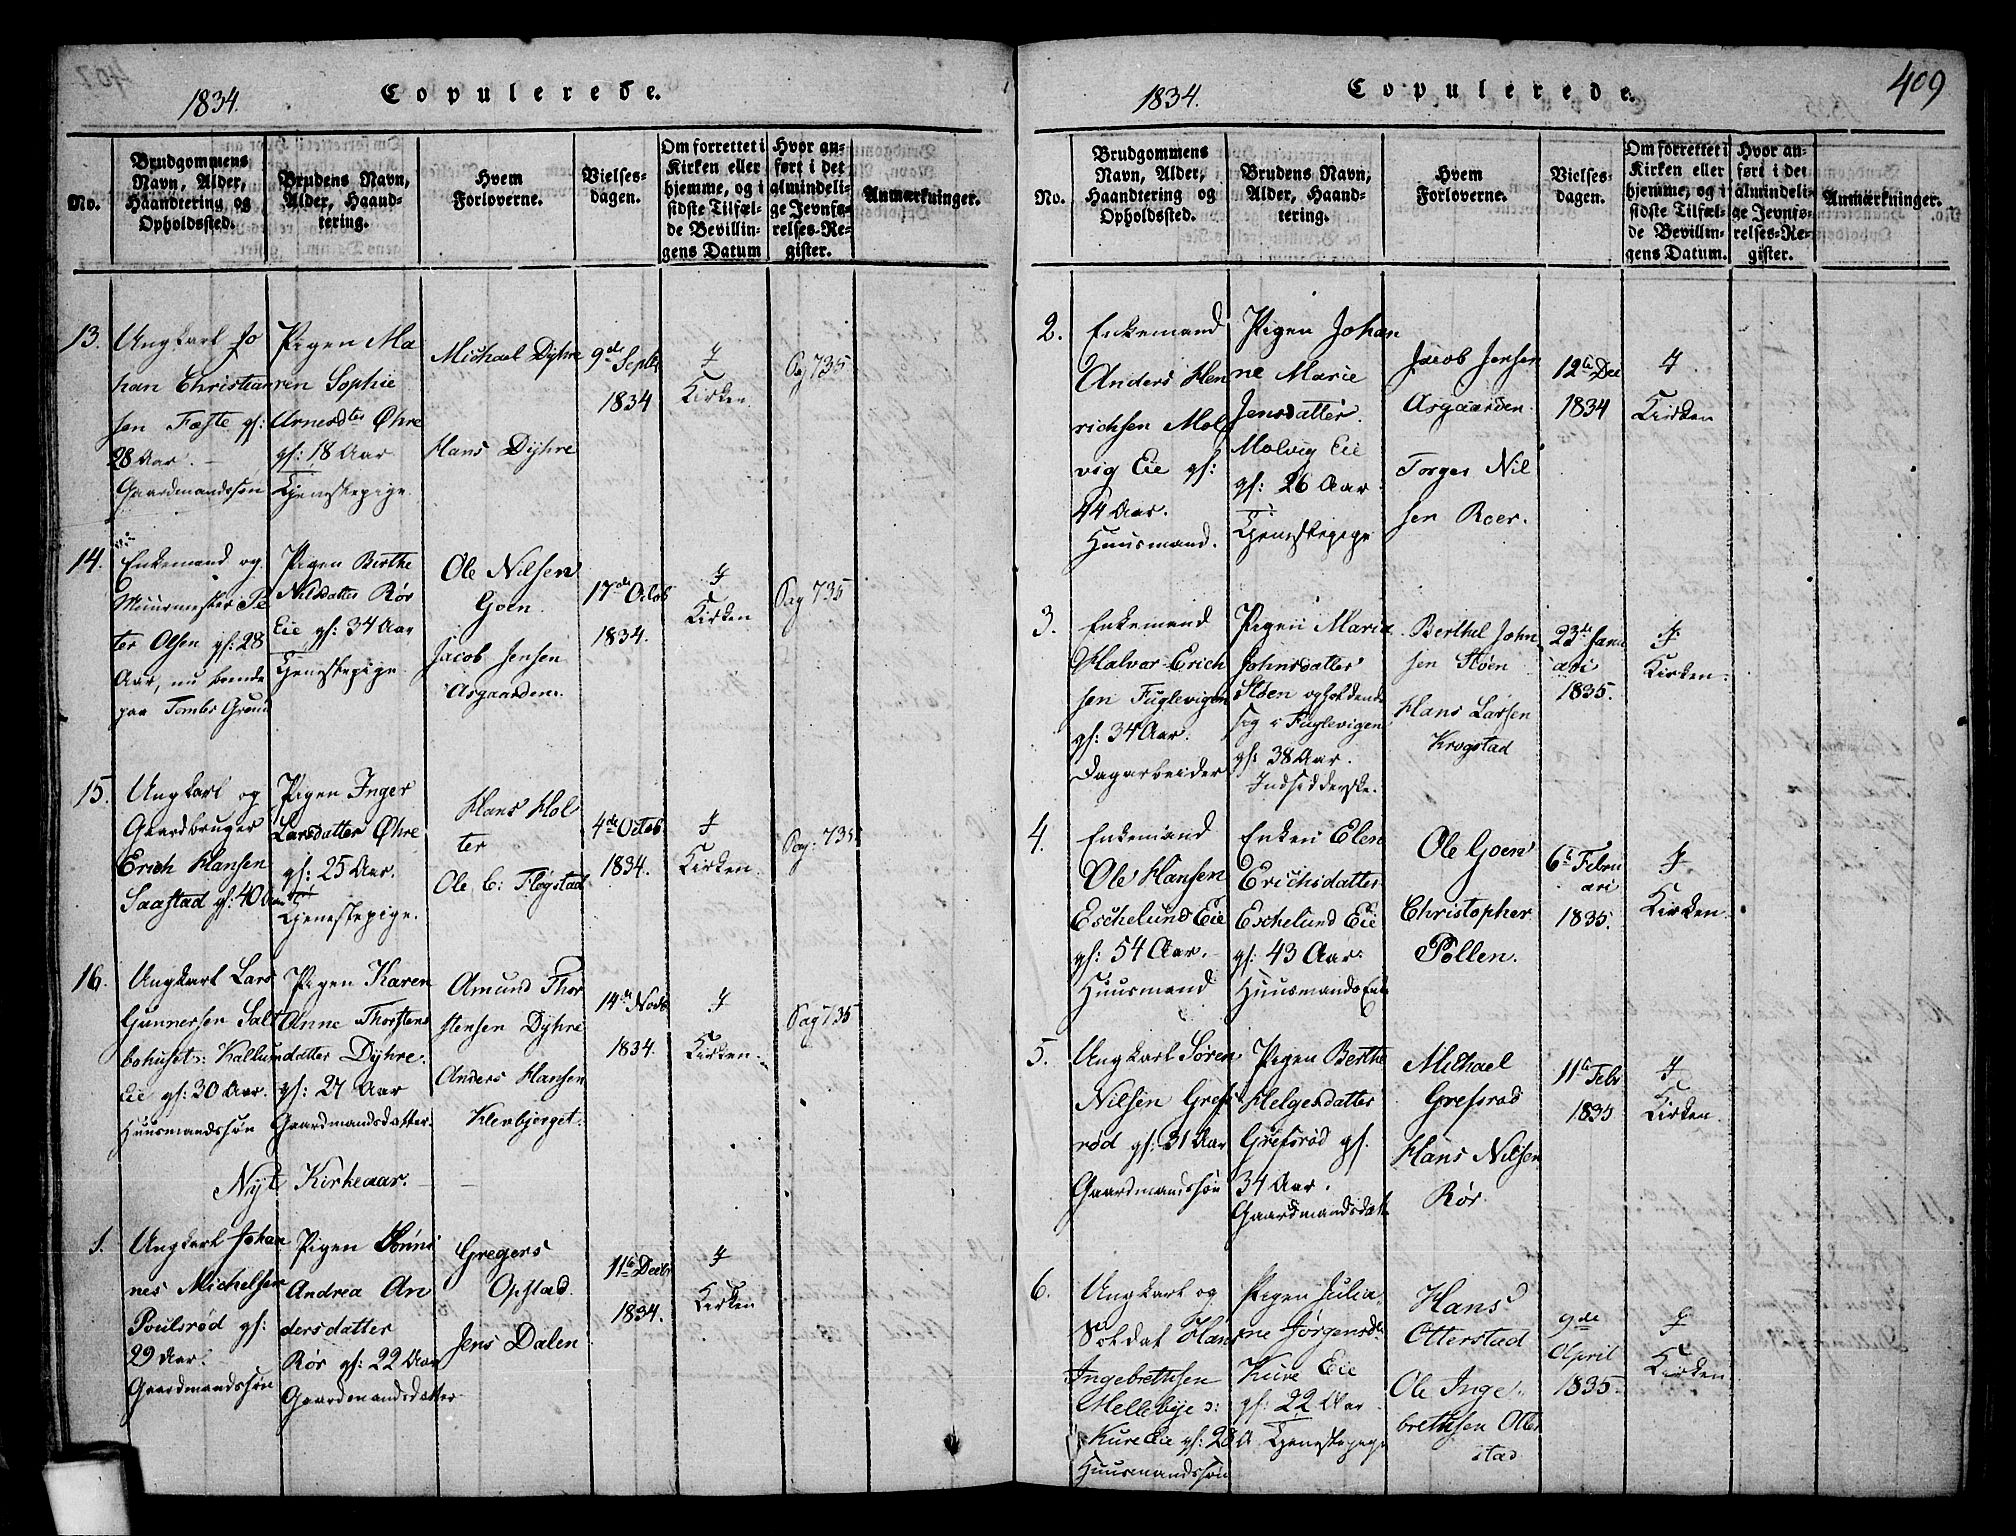 1834.
Copulerede.
No.
Brudgommens Navn, Alder, Haandtering og Opholdssted.
Brudens Navn, Alder, Haandtering.
Hvem Forloverne.
Vielses-dagen.
Om forrettet i Kirken eller hjemme, og i sidste Tilfælde Bevillingens Datum
Hvor anført i det almindelige Jevnførelses-Register.
Anmærkninger.
13.
Ungkarl Jo
han Christian
sen Fæste gf:
28 Aar. –
Gaardmandssøn
Pigen Ma
ren Sophie
Arnesdtr Øhre
gf: 18 Aar
Tjenestepige.
Michael Dyhre
Hans Dyhre
9de Septb
1834
I
Kirken
Pag 735
14.
Enkemand og
Muurmester Pe
ter Olsen gf: 28
Aar, nu boende
paa Tombs Grund
Pigen Berthe
Nilsdatter Rør
Eie gf: 34 Aar
Tjenestepige
Ole Nilsen
Goen.
Jacob Jensen
Asgaarden.
17de Octob
1834.
I
Kirken
Pag 735
15.
Ungkarl og
Gaardbruger
Erich Hansen
Saastad gf: 40 Aar
Pigen Inger
Larsdatter Øhre
gf: 25 Aar.
Tjenestepige.
Hans Hol
ter
Ole C: Fløgstad
4de Octob
1834.
I
Kirken.
Pag: 735
16.
Ungkarl Lars
Gunnersen Salt
bohuset: Kallum
Eie gf: 30 Aar.
Huusmandssøn
Pigen Karen
Anne Thorstens
datter Dyhre.
gf: 27 Aar
Gaardmandsdatter.
Amund Thor
stensen Dyhre
Anders Hansen
Klevbjerget.
14de Novb
1834.
I
Kirken.
Pag 735
Nyt Kirkeaar.
1.
Ungkarl Johan
nes Michelsen
Poulsrød gf:
29 Aar.
Gaardmandssøn
Pigen
Andrea An
dersdatter
Rør gf: 22 Aar
Gaardmandsdatter
Gregers
Opstad.
Jens Dalen
11te Decbr
1834.
I
Kirken
1834.
Copulerede.
409
No.
Brudgommens Navn, Alder, Haandtering og Opholdssted.
Brudens Navn, Alder, Haandtering.
Hvem Forloverne.
Vielses-dagen.
Om forrettet i Kirken eller hjemme, og i sidste Tilfælde Bevillingens Datum.
Hvor anført i det almindelige Jevnførelses-Register.
Anmærkninger.
2.
Enkemand
Anders Hen
richsen Mol
vig Eie gf:
44 Aar.
Huusmand.
Pigen Johan
ne Marie
Jensdatter
Molvig Eie
gf: 26 Aar
Tjenestepige
Jacob Jensen
Asgaarden.
Torger Nil
sen Roer.
12te Dec
1834
I
Kirken
3.
Enkemand
Halvor Erich
sen Fuglevigen
gf: 34 Aar.
Dagarbeider
Pigen Maria
Johnsdatter
Støen opholdende
sig i Fuglevigen
gf: 38 Aar.
Indsidderske.
Berthel John
sen Støen
Hans Larsen
Krogstad
23de Janu
ari
1835.
I
Kirken.
4.
Enkemand
Ole Hansen
Eschelund Eie
gf: 54 Aar. –
Huusmand
Enken Elen
Erichsdatter
Eschelund Eie
gf: 43 Aar.
Huusmands Enke
Ole Goen
Christopher
Pollen.
6te Febru
ari
1835.
I
Kirken.
5.
Ungkarl Søren
Nilsen Grefs
rød gf: 31 Aar
Gaardmandssøn
Pigen Berthe
Helgesdatter
Grefsrød gf.
34 Aar.
Gaardmandsdatter
Michael
Grefsrød
Hans Nilsen
Rør.
11te Febr
1835
I
Kirken.
6.
Ungkarl og
Soldat Hans
Ingebrethsen
Mellebye :
Kure Eie gf: 28 A
Huusmandssøn
Pigen Julia
ne Jørgensdtr
Kure Eie
gf: 22 Aar.
Tjenestepige
Hans
Otterstad
Ole Inge
brethsen Otter
stad
9de
April
1835.
I
Kirken